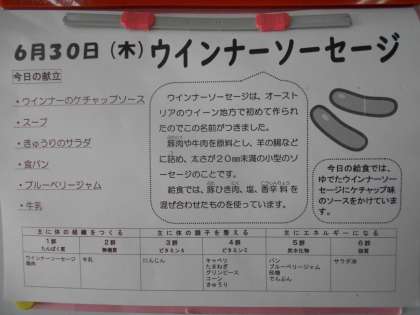 6月30日(木)ウインナーソーセージ
今日の献立
・ウインナーのケチャップソース
・スープ
・きゅうりのサラダ
・食パン
・ブルーベリージャム
・牛乳
ウインナーソーセージは、オースト
リアのウイーン地方で初めて作られ
たのでこの名前がつきました。
豚肉や牛肉を原料とし、羊の腸など
に詰め、太さが20mm未満の小型のソー
セージのことです。
給食では、豚ひき肉、塩、香辛料を
混ぜ合わせたものを使っています。
今日の給食では、
ゆでたウインナーソー
セージにケチャップ味
のソースをかけていま
す。
主に体の組織をつくる 主に体の調子を整える 主にエネルギーになる
1群 2群 3群 4群 5群 6群
たんぱく質 無機質 ビタミンA ビタミンC 炭水化物 脂質
ウインナーソーセージ 牛乳 にんじん キャベツ パン サラダ油
豚肉 たまねぎ ブルーベリージャム
グリンピース 砂糖
コーン でんぷん
きゅうり